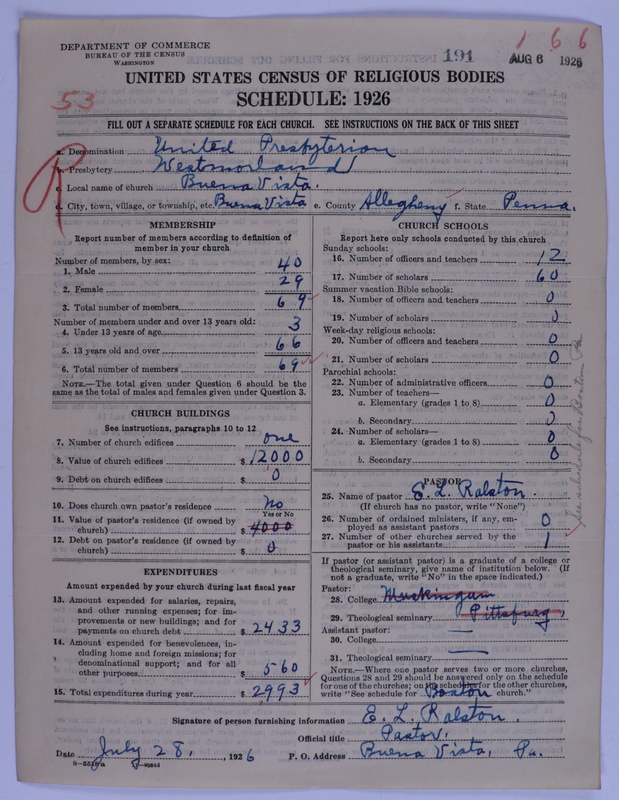 DEPARTMENT OF COMMERCE
BUREAU OF THE CENSUS
WASHINGTON
191
AUG 6 1926
1 6 6
UNITED STATES CENSUS OF RELIGIOUS BODIES
SCHEDULE: 1926
53
FILL OUT A SEPARATE SCHEDULE FOR EACH CHURCH. SEE INSTRUCTIONS ON THE BACK OF THIS SHEET
a. Denomination United Presbyterian
b. Presbytery Westmorland
c. Local name of church Buena Vista.
d. City, town, village, or township, etc. Buena Vista e. County Allegheny f. State Penna.
MEMBERSHIP
Report number of members according to definition of
member in your church
Number of members, by sex:
1. Male 40
2. Female 29
3. Total number of members 69
Number of members under and over 13 years old:
4. Under 13 years of age 3
5. 13 years old and over 66
6. Total number of members 69
NOTE.—The total given under Question 6 should be the
same as the total of males and females given under Question 3.
CHURCH BUILDINGS
See instructions, paragraphs 10 to 12
7. Number of church edifices one
8. Value of church edifices $ 12000
9. Debt on church edifices $ 0
10. Does church own pastor's residence no
Yes or No
11. Value of pastor's residence (if owned by
church) $ 4000
12. Debt on pastor's residence (if owned by
church) $ 0
EXPENDITURES
Amount expended by your church during last fiscal year
13. Amount expended for salaries, repairs,
and other running expenses; for im-
provements or new buildings; and for
payments on church debt $ 2433
14. Amount expended for benevolences, in-
cluding home and foreign missions; for
denominational support; and for all
other purposes $ 560
15. Total expenditures during year $ 2993
CHURCH SCHOOLS
Report here only schools conducted by this church
Sunday schools:
16. Number of officers and teachers 12
17. Number of scholars 60
Summer vacation Bible schools:
18. Number of officers and teachers 0
19. Number of scholars 0
Week-day religious schools:
20. Number of officers and teachers 0
21. Number of scholars 0
Parochial schools:
22. Number of administrative officers 0
23. Number of teachers—
a. Elementary (grades 1 to 8) 0
b. Secondary 0
24. Number of scholars—
a. Elementary (grades 1 to 8) 0
b. Secondary 0
PASTOR
25. Name of pastor E. L. Ralston.
(If church has no pastor, write "None")
26. Number of ordained ministers, if any, em-
ployed as assistant pastors 0
27. Number of other churches served by the
pastor or his assistants 1
See schedule for Boston Pa
If pastor (or assistant pastor) is a graduate of a college or
theological seminary, give name of institution below. (If
not a graduate, write "No" in the space indicated.)
Pastor:
28. College Muskingum
29. Theological seminary Pittsburg,
Assistant pastor:
30. College
31. Theological seminary
NOTE.—Where one pastor serves two or more churches,
Questions 28 and 29 should be answered only on the schedule
for one of the churches; on the schedules for the other churches,
write "See schedule for Boston church."
Signature of person furnishing information E. L. Ralston.
Official title Pastor,
Date July 28, 1926 P. O. Address Buena Vista, Pa.